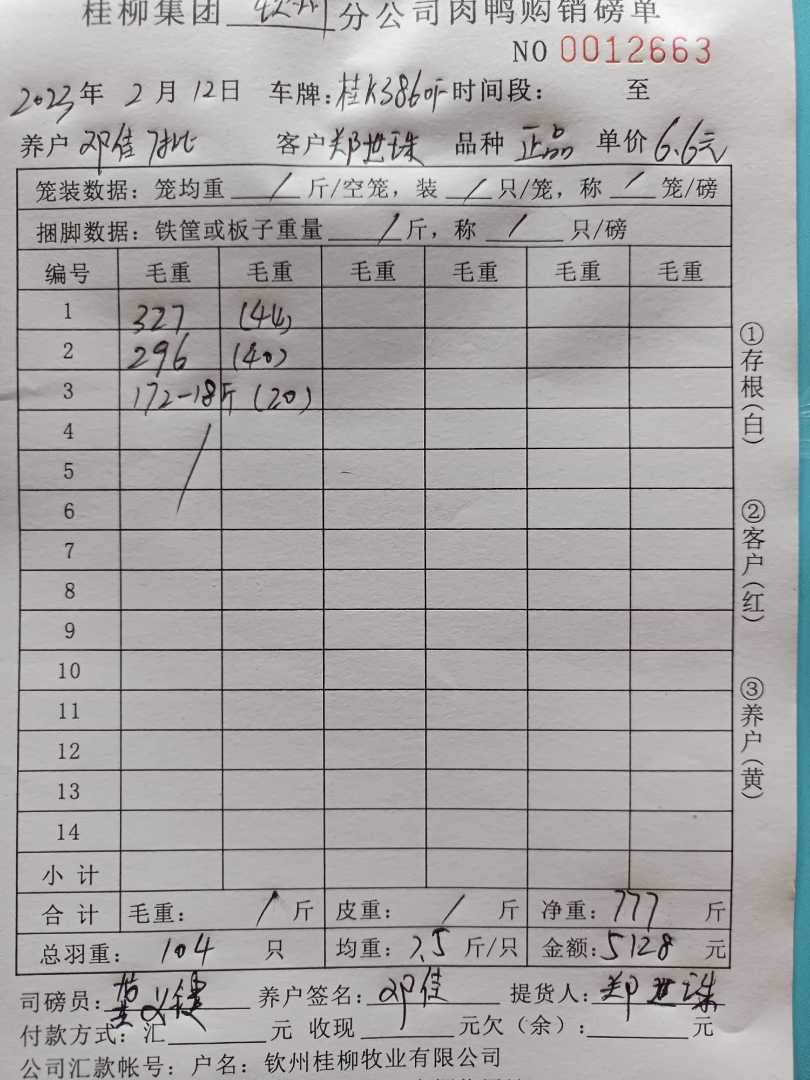 桂柳集团 钦州 分公司肉鸭购销磅单
NO 0012663
2023年 2月12日 车牌:桂K3860F 时间段: 至
养户 邓佳 客户 郑世珠 品种 正品 单价 6.6元
笼装数据:笼均重 / 斤/空笼,装 / 只/笼,称 / 笼/磅
捆脚数据:铁筐或板子重量 / 斤,称 / 只/磅
编号 毛重 毛重 毛重 毛重 毛重 毛重
1 327 (44)
2 296 (40)
3 172-18斤 (20)
4 /
5
6
7
8
9
10
11
12
13
14
小计
合计 毛重: / 斤 皮重: / 斤 净重:777 斤
总羽重: 104 只 均重:7.5 斤/只 金额:5128 元
司磅员: 养户签名: 邓佳 提货人: 郑世珠
付款方式:汇 元 收现 元欠(余): 元
公司汇款帐号:户名:钦州桂柳牧业有限公司
①存根(白)
②客户(红)
③养户(黄)